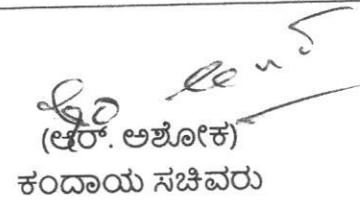 (ಆರ್. ಅಶೋಕ)
ಕಂದಾಯ ಸಚಿವರು